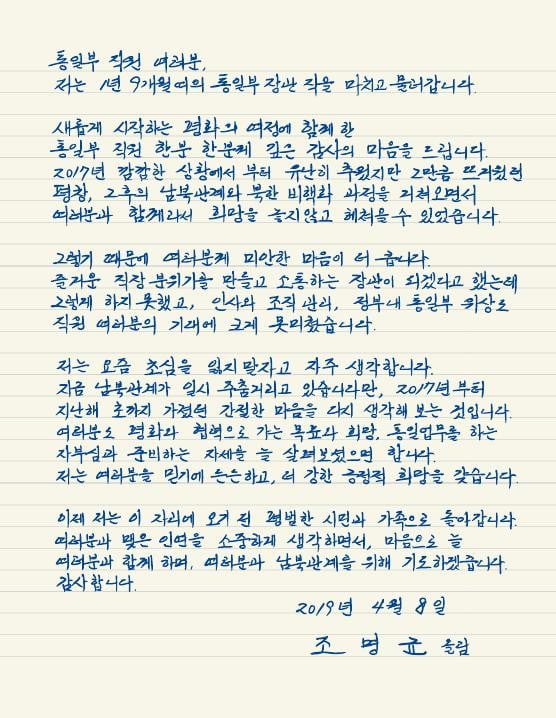 통일부 직원 여러분,
저는 1년 9개월여의 통일부장관 직을 마치고 물러갑니다.
새롭게 시작하는 평화의 여정에 함께 한
통일부 직원 한분 한분께 깊은 감사의 마음을 드립니다.
2017년 캄캄한 상황에서 부터 유난히 추웠지만 그만큼 뜨거웠던
평창, 그후의 남북관계와 북한 비핵화 과정을 거쳐오면서
여러분과 함께라서 희망을 놓지않고 헤쳐올 수 있었습니다.
그렇기 때문에 여러분께 미안한 마음이 더 큽니다.
즐거운 직장 분위기를 만들고 소통하는 장관이 되겠다고 했는데
그렇게 하지 못했고, 인사와 조직 관리, 정부내 통일부 위상도
직원 여러분의 기대에 크게 못미쳤습니다.
저는 요즘 초심을 잃지 말자고 자주 생각합니다.
지금 남북관계가 일시 주춤거리고 있습니다만, 2017년부터
지난해 초까지 가졌던 간절한 마음을 다시 생각해 보는 것입니다.
여러분도 평화와 협력으로 가는 목표와 희망, 통일업무를 하는
자부심과 준비하는 자세를 늘 살펴보셨으면 합니다.
저는 여러분을 믿기에 든든하고, 더 강한 긍정적 희망을 갖습니다.
이제 저는 이 자리에 오기 전 평범한 시민과 가족으로 돌아갑니다.
여러분과 맺은 인연을 소중하게 생각하면서, 마음으로 늘
여러분과 함께 하며, 여러분과 남북관계를 위해 기도하겠습니다.
감사합니다.
2019년 4월 8일
조명균 올림